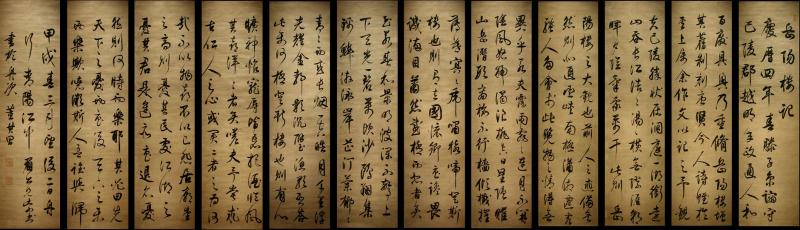 岳陽樓記
慶曆四年春滕子京謫守
巴陵郡越明年政通人和
百廢具興乃重脩岳陽樓增
其舊制刻唐賢今人詩賦於
其上屬余作文以記之予觀
夫巴陵勝狀在洞庭一湖銜遠
山吞長江浩浩湯湯橫無際涯朝
暉夕陰氣象萬千此則岳
陽樓之大觀也前人之述備矣
然則北通巫峽南極瀟湘遷客
騷人多會於此覽物之情得無
異乎若夫霪雨霏霏連月不開
陰風怒號濁浪排空日星隱曜
山岳潛形商旅不行檣傾楫摧
薄暮冥冥虎嘯猿啼登斯
樓也則有去國懷鄉憂讒畏
譏滿目蕭然感極而悲者矣
至若春和景明波瀾不驚上
下天光一碧萬頃沙鷗翔集
錦鱗游泳岸芷汀蘭郁郁
青青而或長煙一空皓月千里浮
光耀金靜影沉璧漁歌互答
此樂何極登斯樓也則有心
曠神怡寵辱皆忘把酒臨風
其喜洋洋者矣嗟夫予嘗求
古仁人之心或異二者之為何
哉不以物喜不以己悲居廟堂
之高則憂其民處江湖之遠則
憂其君是進亦憂退亦憂
然則何時而樂耶其必曰先
天下之憂而憂後天下之樂
而樂歟噫微斯人吾誰與歸
甲戌春三月望後二日舟
行黃陽江中
書於舟次 董其昌